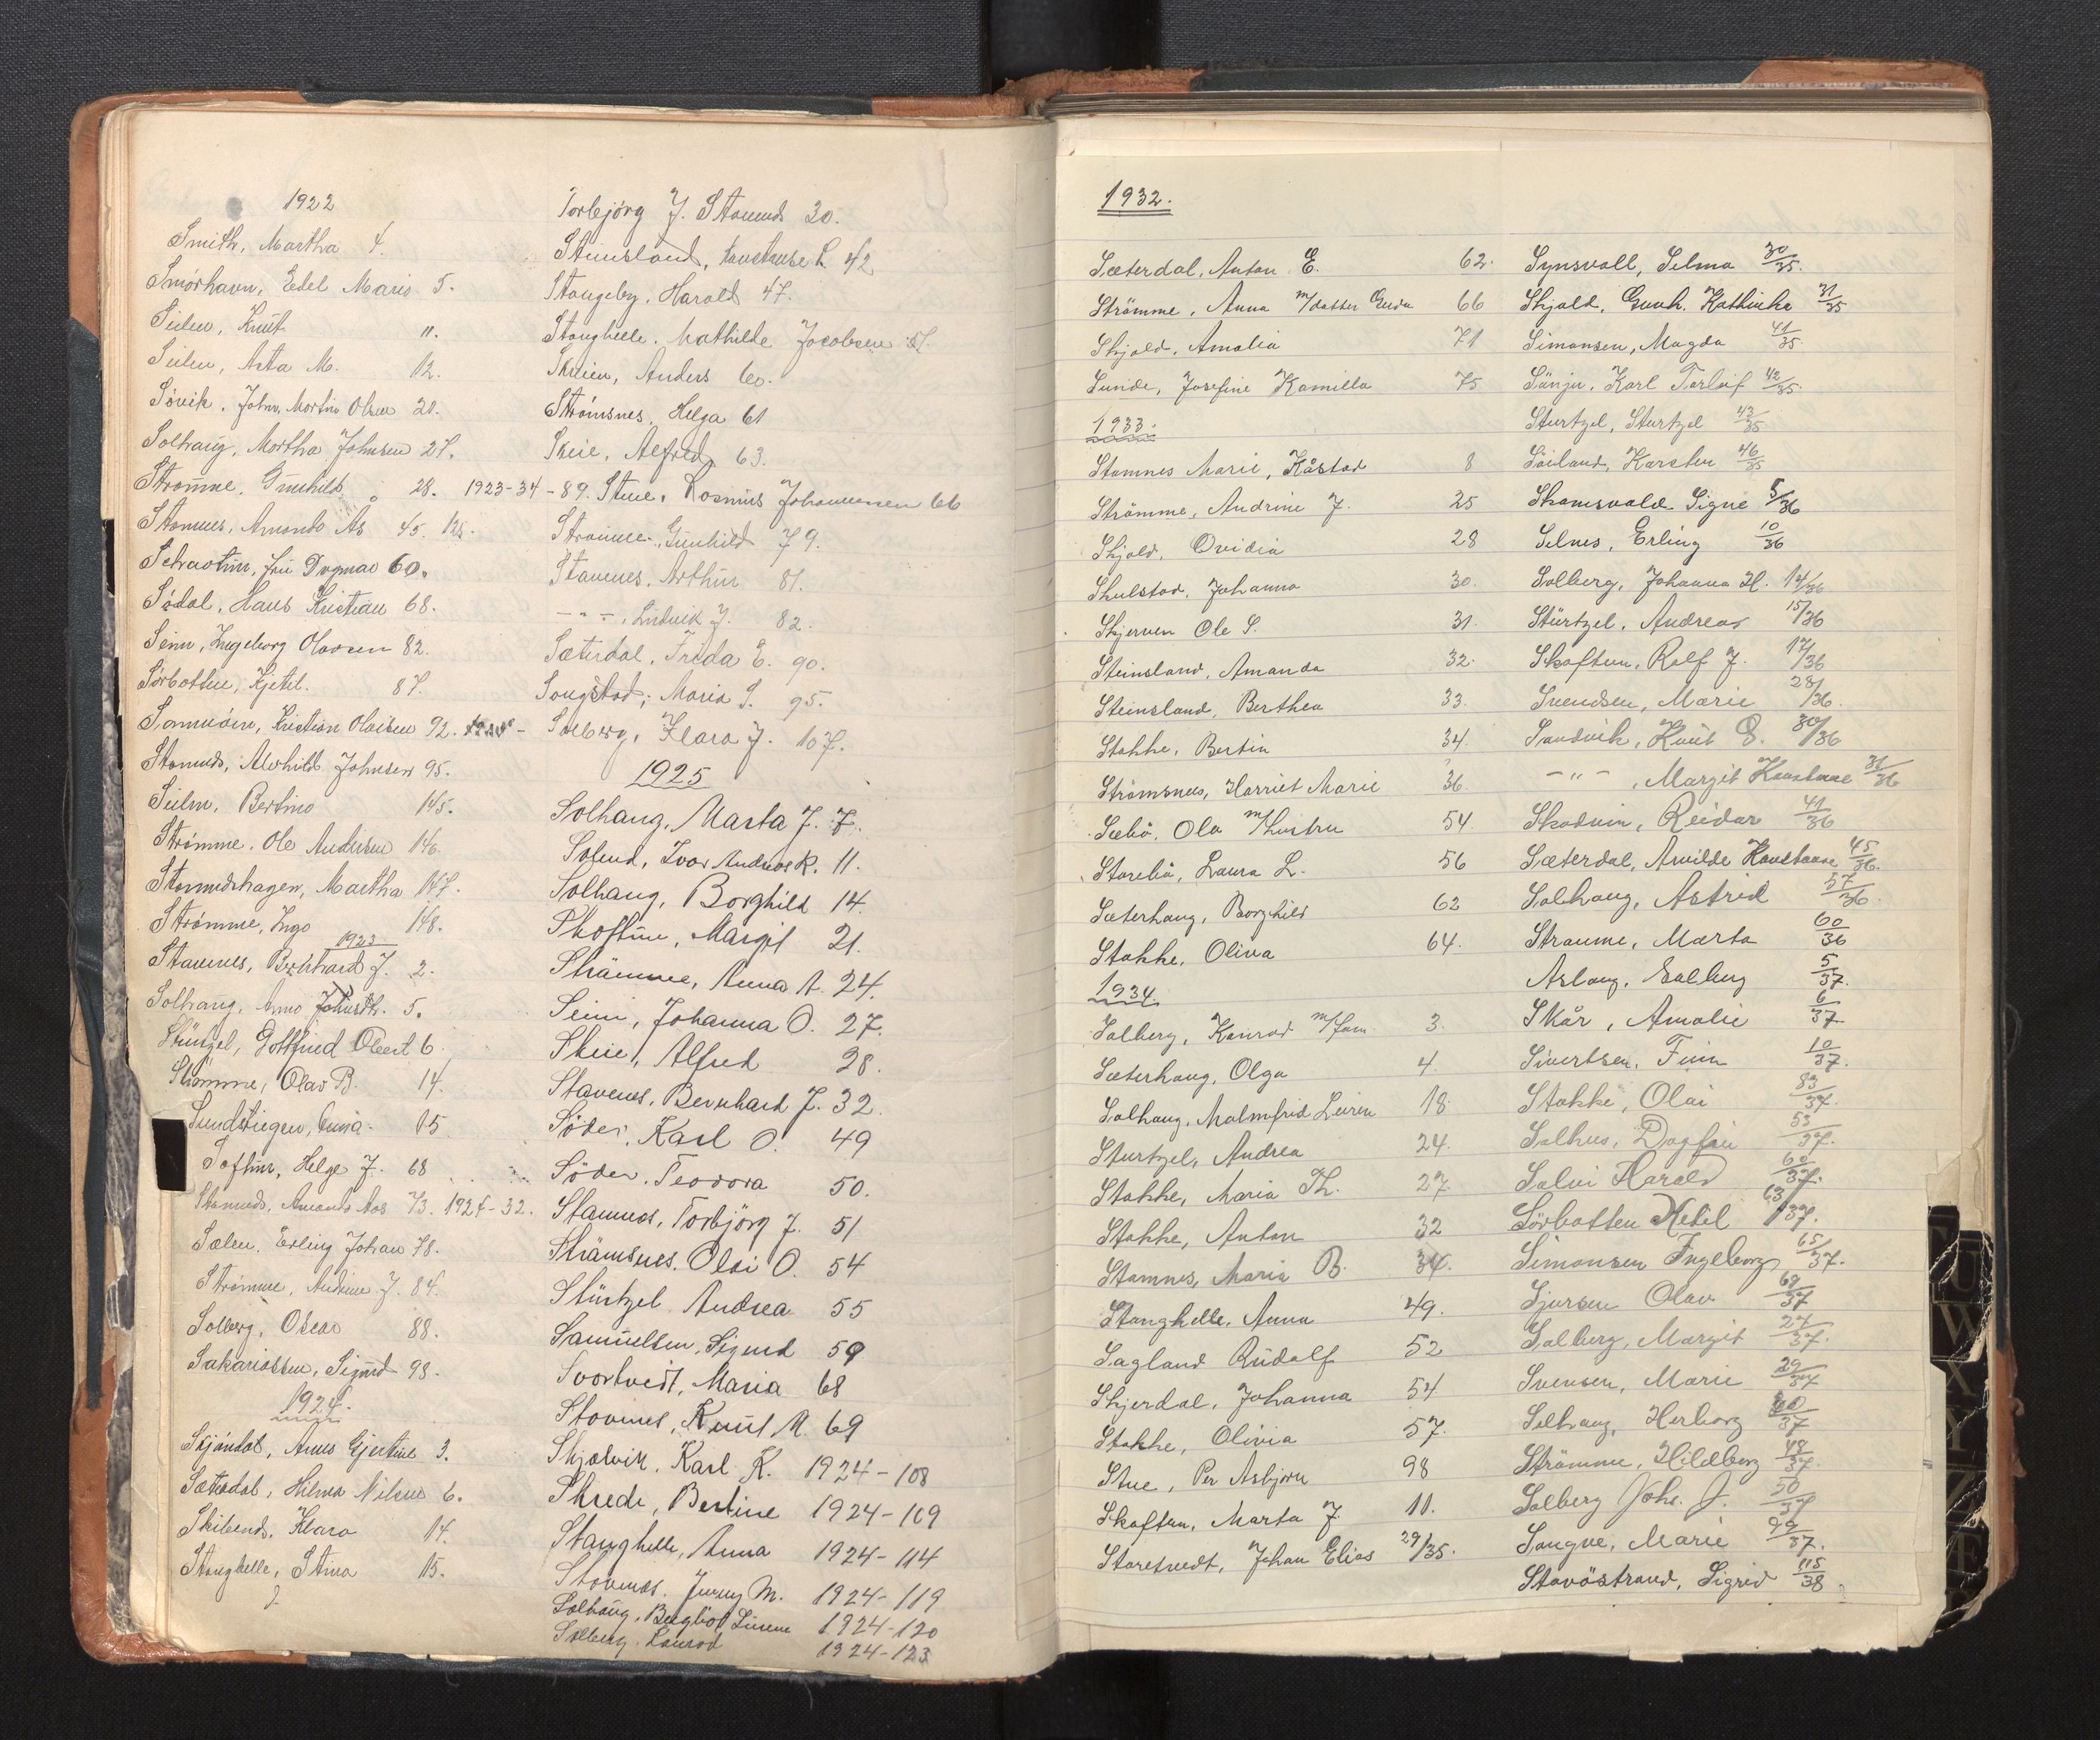 1922
Smith, Martha 4.
Smørhavn, Edel Marie 5.
Seilen, Knut 11.
Seilen, Asta M. 12.
Søvik, Johs. Martin Olsen 20.
Solhaug, Martha Johnsen 27.
Strømme, Gunhild 28. 1923-34-89.
Stamnes, Amanda As 45. 125.
Sebastin, fru Dagmar 60.
Södal, Hans Kristian 68.
Seim, Ingeborg Olavsen 82.
Sørbotten, Kjetil. 87.
Samuelsen, Kristian Olaisen 92.
Stamnes, Alvhild Johnsen 95.
Seilm, Bertine 145.
Strømme, Ole Andersen 146.
Stamneshagen, Martha 147.
Strømme, Inga 148.
1923
Stamnes, Bernhard J. 2.
Solhaug, Anna Johnsdtr. 5.
Stüntzel, Gottfried Obert 6.
Strømme, Olav B. 14.
Sundstiegen, Anna 15
Toftun, Helge J. 68
Stamnes, Amanda Aas 73. 1924-32.
Sælen, Erling Johan 78.
Strømme, Andrine J. 84.
Solberg, Oscar 88.
Sakariassen, Sigurd 98.
1924.
Skjøndal, Anna Gjertine 3.
Sæterdal, Hilma Nilsen 6.
Skibenes, Klara 14.
Stanghelle, Stina 15.
Torbjörg J. Stamnes 30.
Steinsland, Konstanse L 42
Stangeby, Harald 47.
Stanghelle, Mathilde Jacobsen 51.
Skeien, Anders 60.
Strömsnes, Helga 61
Skeie, Alfred 63.
Stue, Rasmus Johannessen 66
Strømme, Gunhild 79.
Stamnes, Arthur 81.
— " —, Ludvik J. 82.
Sæterdal, Frida E. 90.
Songstad, Maria S. 95.
Solberg, Klara J. 107.
1925
Solhaug, Marta J. 7.
Solend, Ivar Andreas K. 11.
Solhaug, Borghild 14.
Skoftun, Margit 21.
Strämme, Anna A. 24.
Seim, Johanna O. 27.
Skeie, Alfred 28.
Stavenes, Bernhard J. 32.
Söder, Karl O. 49
Söder, Teodora 50.
Stamnes, Torbjörg J. 51
Strämsnes, Olai O. 54
Stürtzel Andrea 55
Samuelsen, Sigurd 59
Svortvedt, Maria 68
Stavnes, Knut A. 69
Skjelvik, Karl K. 1924-108
Skrede, Bertine 1924-109
Stanghelle, Anna 1924-114
Stavnes, Jenny M. 1924-119
Solhaug, Bergliot Lirene 1924-120
Solberg, Konrad 1924-123
1932.
Sæterdal, Anton E. 62.
Strömme, Anna m/datter Gerda 66
Skjold, Amalia 71
Sunde, Josefine Kamilla 75
1933.
Stamnes Marie, Kåstad 8
Strömme, Andrine J. 25
Skjold, Ovidia 28
Skulstad, Johanna 30.
Skjerven Ole S. 31.
Steinsland, Amanda 32.
Steinsland, Berthea 33.
Stokke, Bertin 34.
Strömsnes, Harriet Marie 36.
Sæbö, Ola m/hustru 54.
Storebö, Laura L. 56
Sæterhaug, Borghild 62
Stokke, Oliva 64.
1934.
Solberg, Konrad m/fam. 3.
Sæterhaug, Olga 4.
Solhaug, Malmfrid Leiren 18.
Sturtzel, Andrea 24.
Stokke, Maria Th. 27.
Stokke, Anton 32
Stamnes, Maria B. 34.
Stanghelle, Anna 49.
Sagland Rudolf 52
Skjerdal, Johanna 54
Stokke, Olivia 57.
Stue, Per Asbjørn 98
Skoftun, Marta J. 11.
Storetvedt, Johan Elias 29/35.
Synsvoll, Selma 30/35.
Skjold, Gunh. Kathinka 31/35
Simonsen, Magda 41/35
Sönju, Karl Torleif 42/35.
Sturtzel, Sturtzel 43/35
Söiland, Karsten 46/35
Skomsvold Signe 5/36
Selnes, Erling 10/36
Solberg, Johanna H. 14/36
Stürtzel, Andreas 15/36
Skoftun, Rolf J. 17/36
Svendsen, Marie 28/36.
Sandvik, Knut G. 30/36
— " —, Margit Konstanse 31/36
Skodvin, Reidar 41/36
Sæterdal, Arnilde Konstanse 45/36.
Solhaug, Astrid 57/36.
Straume, Marta 60/36
Aslaug, Solberg 5/37.
Skår, Amalie 6/37
Sivertsen, Finn 10/37.
Stokke, Olai 83/37.
Solhus, Dagfin 53/37.
Solvi Harald 60/37.
Sörbotten Ketil 63/37.
Simonsen Ingeborg 65/37.
Sjursen Olav 69/37
Solberg, Margit 24/37.
Svensen, Marie 29/37
Solhaug, Herborg 60/37
Strömme, Hildborg 48/37.
Solberg Johs. J. 50/37
Songve, Marie 99/37.
Stavöstrand, Sigrid 115/38
U
W
X
Y
Z
Æ